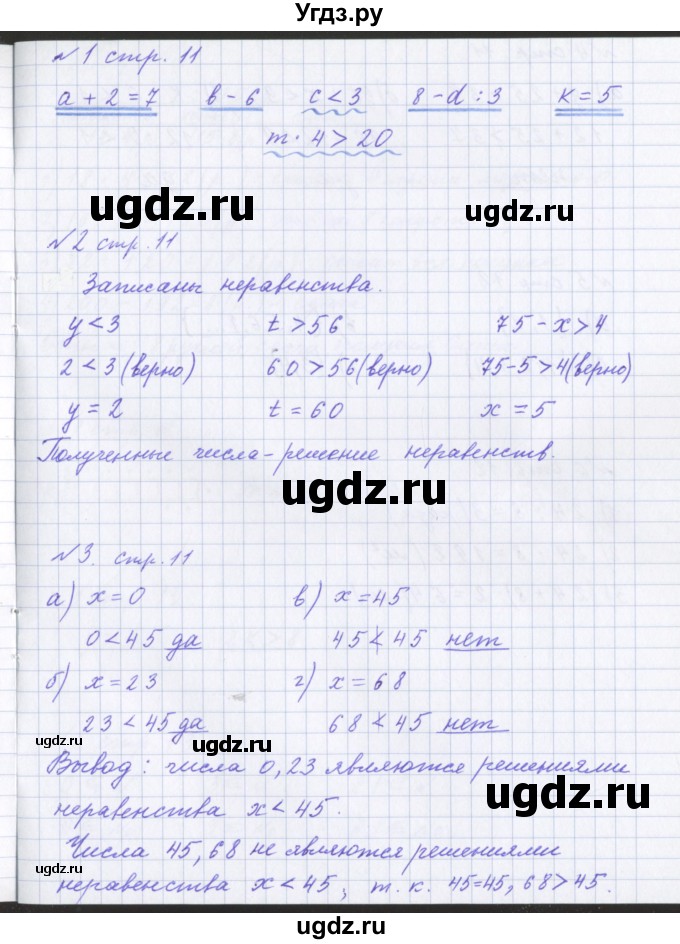 Угдз.ру
№1 стр. 11
a + 2 = 7 в - 6 c < 3 8 - d : 3 k = 5
m · 4 > 20
ugdz.ru ugdz.ru
№2 стр. 11
Записаны неравенства.
y < 3 t > 56 75 - x > 4
2 < 3 (верно) 60 > 56 (верно) 75-5 > 4 (верно)
y = 2 t = 60 x = 5
Полученные числа - решение неравенств.
ugdz.ru
№3. стр. 11
а) x = 0 в) x = 45
0 < 45 да 45 < 45 нет
б) x = 23 г) x = 68
23 < 45 да 68 < 45 нет
ugdz.ru ugdz.ru
Вывод: числа 0, 23 являются решениями
неравенства x < 45.
ugdz.ru
Числа 45, 68 не являются решениями
неравенства x < 45, т. к. 45=45, 68 > 45.
ugdz.ru